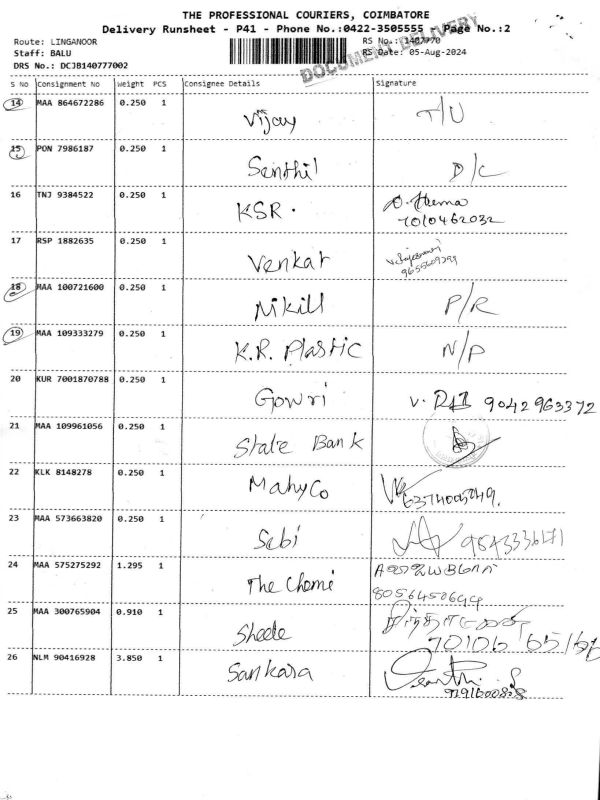 THE PROFESSIONAL COURIERS, COIMBATORE
Delivery Runsheet - P41 - Phone No.:0422-3505555 - Page No.:2
Route: LINGANOOR
RS No.: 1407770
Staff: BALU
RS Date: 05-Aug-2024
DRS No.: DCJB140777002
DOCUMENT DELIVERY
S No Consignment No Weight PCS Consignee Details Signature
14 MAA 864672286 0.250 1 Vijay T/U
15 PON 7986187 0.250 1 Senthil D/C
16 TNJ 9384522 0.250 1 KSR. D. Hema
7010462032
17 RSP 1882635 0.250 1 Venkat
18 MAA 100721600 0.250 1 Nikill P/R
19 MAA 109333279 0.250 1 K.R. Plastic N/P
20 KUR 7001870788 0.250 1 Gowri 9042963372
21 MAA 109961056 0.250 1 State Bank
22 KLK 8148278 0.250 1 Mahyco
23 MAA 573663820 0.250 1 Sebi
24 MAA 575275292 1.295 1 The Chemi
8056450644
25 MAA 300765904 0.910 1 Sheele
26 NLM 90416928 3.850 1 Sankara